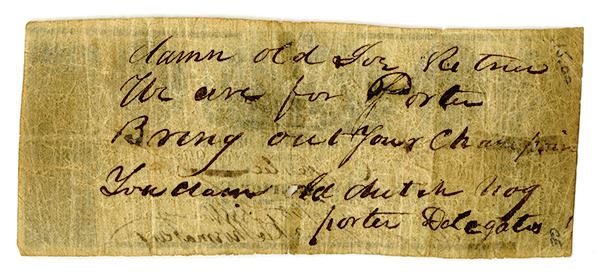 damn old Joe Ritner
We are for Porter
Bring out Your Champion
You dam old dutch hog
porter Delegates